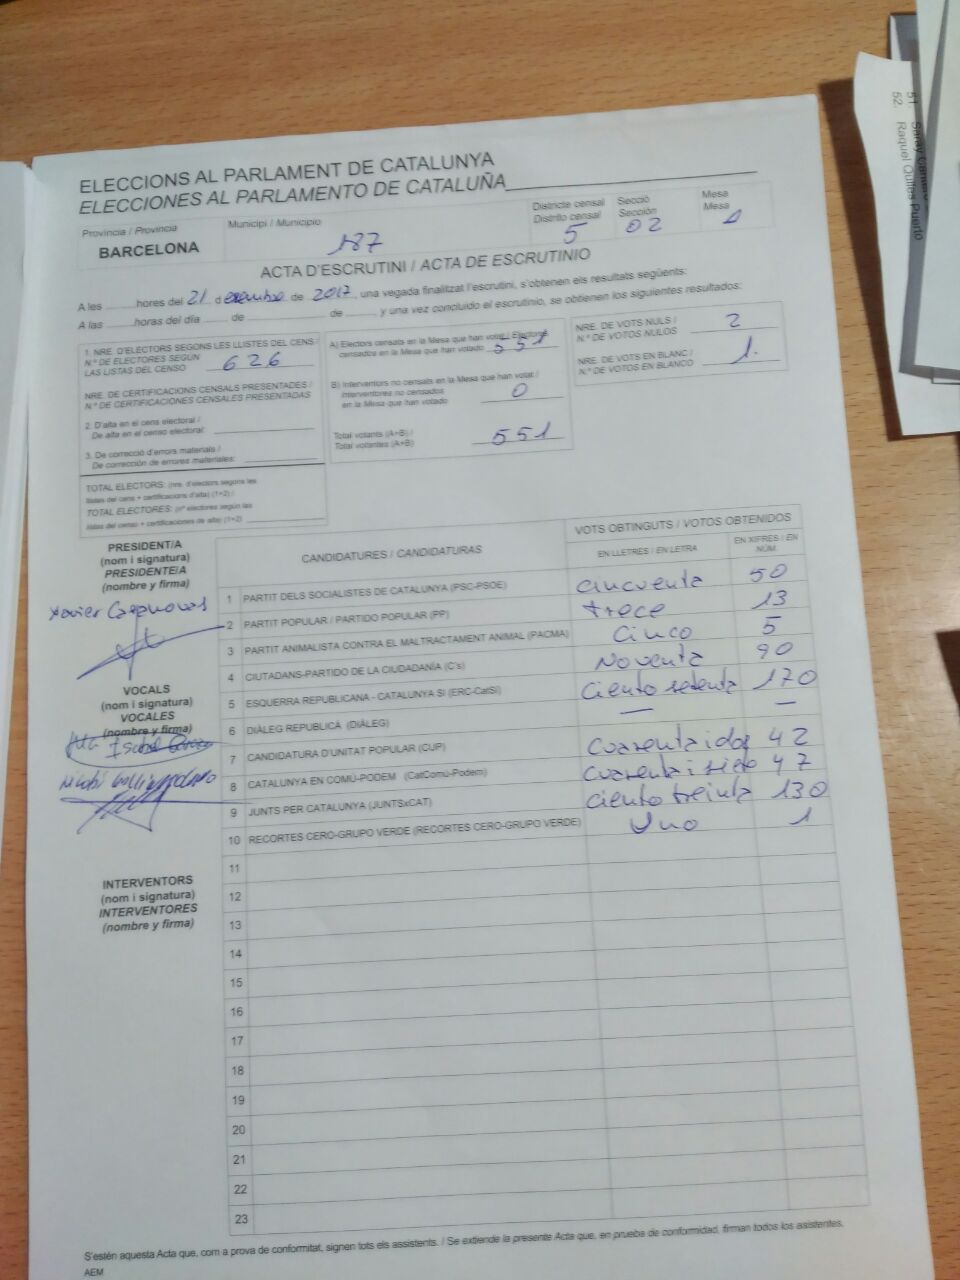 51. Saray
52. Raquel Quiles Puerto
ELECCIONS AL PARLAMENT DE CATALUNYA
ELECCIONES AL PARLAMENTO DE CATALUÑA
Província / Provincia
BARCELONA
Municipi / Municipio
187
Districte censal
Distrito censal
5
Secció
Sección
02
Mesa
Mesa
1
ACTA D'ESCRUTINI / ACTA DE ESCRUTINIO
A les ........hores del 21 d de 2017, una vegada finalitzat l'escrutini, s'obtenen els resultats següents:
A las ........horas del día ....... de ........................ de ........ y una vez concluido el escrutinio, se obtienen los siguientes resultados:
1. NRE. D'ELECTORS SEGONS LES LLISTES DEL CENS /
N.º DE ELECTORES SEGÚN
LAS LISTAS DEL CENSO 626
NRE. DE CERTIFICACIONS CENSALS PRESENTADES /
N.º DE CERTIFICACIONES CENSALES PRESENTADAS
2. D'alta en el cens electoral /
De alta en el censo electoral:
3. De correcció d'errors materials /
De corrección de errores materiales:
TOTAL ELECTORS: (nre. d'electors segons les
llistes del cens + certificacions d'alta) (1+2) /
TOTAL ELECTORES: (nº electores según las
listas del censo + certificaciones de alta) (1+2)
A) Electors censats en la Mesa que han votat / Electores
censados en la Mesa que han votado 551
B) Interventors no censats en la Mesa que han votat /
Interventores no censados
en la Mesa que han votado 0
Total votants (A+B) /
Total votantes (A+B) 551
NRE. DE VOTS NULS /
N.º DE VOTOS NULOS 2
NRE. DE VOTS EN BLANC /
N.º DE VOTOS EN BLANCO 1.
PRESIDENT/A
(nom i signatura)
PRESIDENTE/A
(nombre y firma)
Xavier Casanovas
VOCALS
(nom i signatura)
VOCALES
(nombre y firma)
Isabel
INTERVENTORS
(nom i signatura)
INTERVENTORES
(nombre y firma)
CANDIDATURES / CANDIDATURAS
VOTS OBTINGUTS / VOTOS OBTENIDOS
EN LLETRES / EN LETRA
EN XIFRES / EN NÚM.
1 PARTIT DELS SOCIALISTES DE CATALUNYA (PSC-PSOE) cincuenta 50
2 PARTIT POPULAR / PARTIDO POPULAR (PP) trece 13
3 PARTIT ANIMALISTA CONTRA EL MALTRACTAMENT ANIMAL (PACMA) Cinco 5
4 CIUTADANS-PARTIDO DE LA CIUDADANÍA (C's) Noventa 90
5 ESQUERRA REPUBLICANA - CATALUNYA SÍ (ERC-CatSí) Ciento setenta 170
6 DIÀLEG REPUBLICÀ (DIÀLEG) — —
7 CANDIDATURA D'UNITAT POPULAR (CUP) Cuarenta i dos 42
8 CATALUNYA EN COMÚ-PODEM (CatComú-Podem) Cuarenta i siete 47
9 JUNTS PER CATALUNYA (JUNTSxCAT) Ciento treinta 130
10 RECORTES CERO-GRUPO VERDE (RECORTES CERO-GRUPO VERDE) Uno 1
11
12
13
14
15
16
17
18
19
20
21
22
23
S'estén aquesta Acta que, com a prova de conformitat, signen tots els assistents. / Se extiende la presente Acta que, en prueba de conformidad, firman todos los asistentes.
AEM